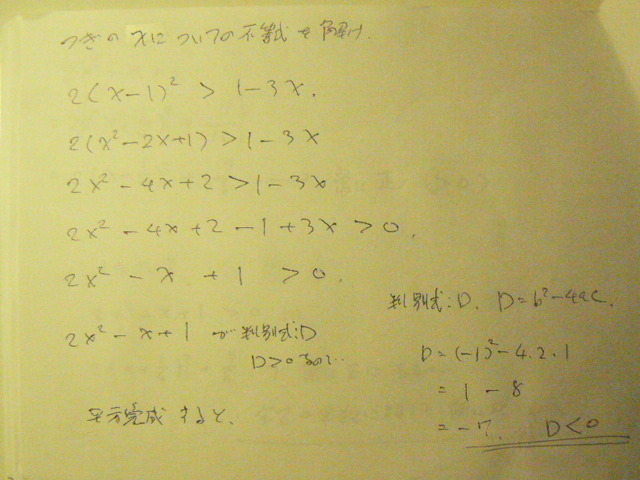 つぎの xについての不等式を解け.
2(x-1)² > 1-3x.
2(x²-2x+1) > 1-3x
2x²-4x+2 > 1-3x
2x²-4x+2-1+3x > 0.
2x²-x+1 > 0.
2x²-x+1 が判別式:D
D>0なので..
平方完成すると、
判別式:D. D=b²-4ac.
D=(-1)²-4.2.1
=1-8
=-7. D<0